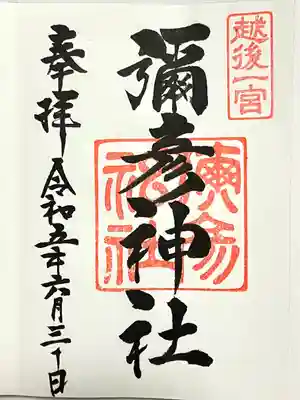 越後一宮
彌彦神社
彌彦神社
奉拝 令和五年六月三十日